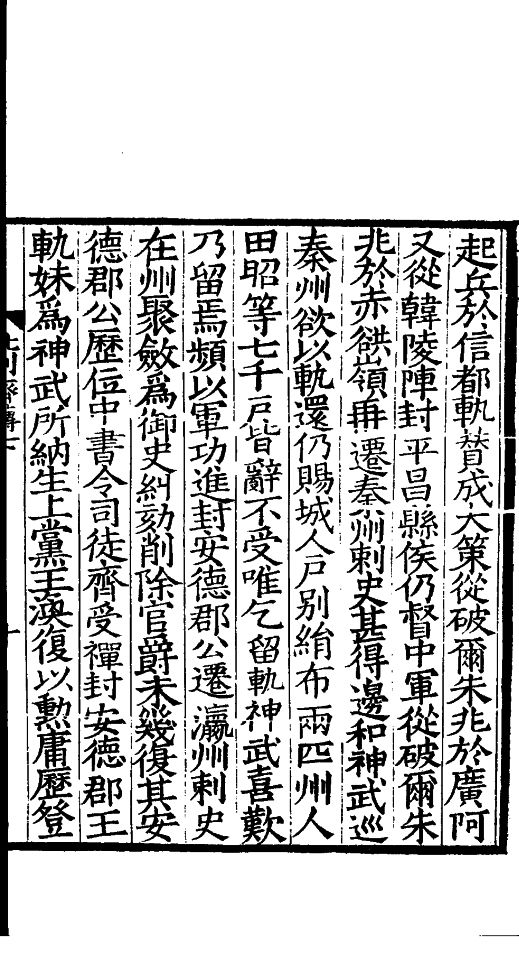 起兵於信都軌賛成大策從破爾朱兆於廣阿
又從韓陵陣封平昌縣侯仍督中軍從破爾朱
兆於赤谼嶺再遷秦州刺史甚得邊和神武巡
秦州欲以軌還仍賜城人戸别絹布兩匹州人
田昭等七千戸皆辭不受唯乞留軌神武喜歎
乃留焉頻以軍功進封安德郡公遷瀛州刺史
在州聚斂爲御史糾劾削除官爵未幾復其安
德郡公歷位中書令司徒齊受禪封安德郡王
軌妹爲神武所納生上黨王渙復以勲庸歷登